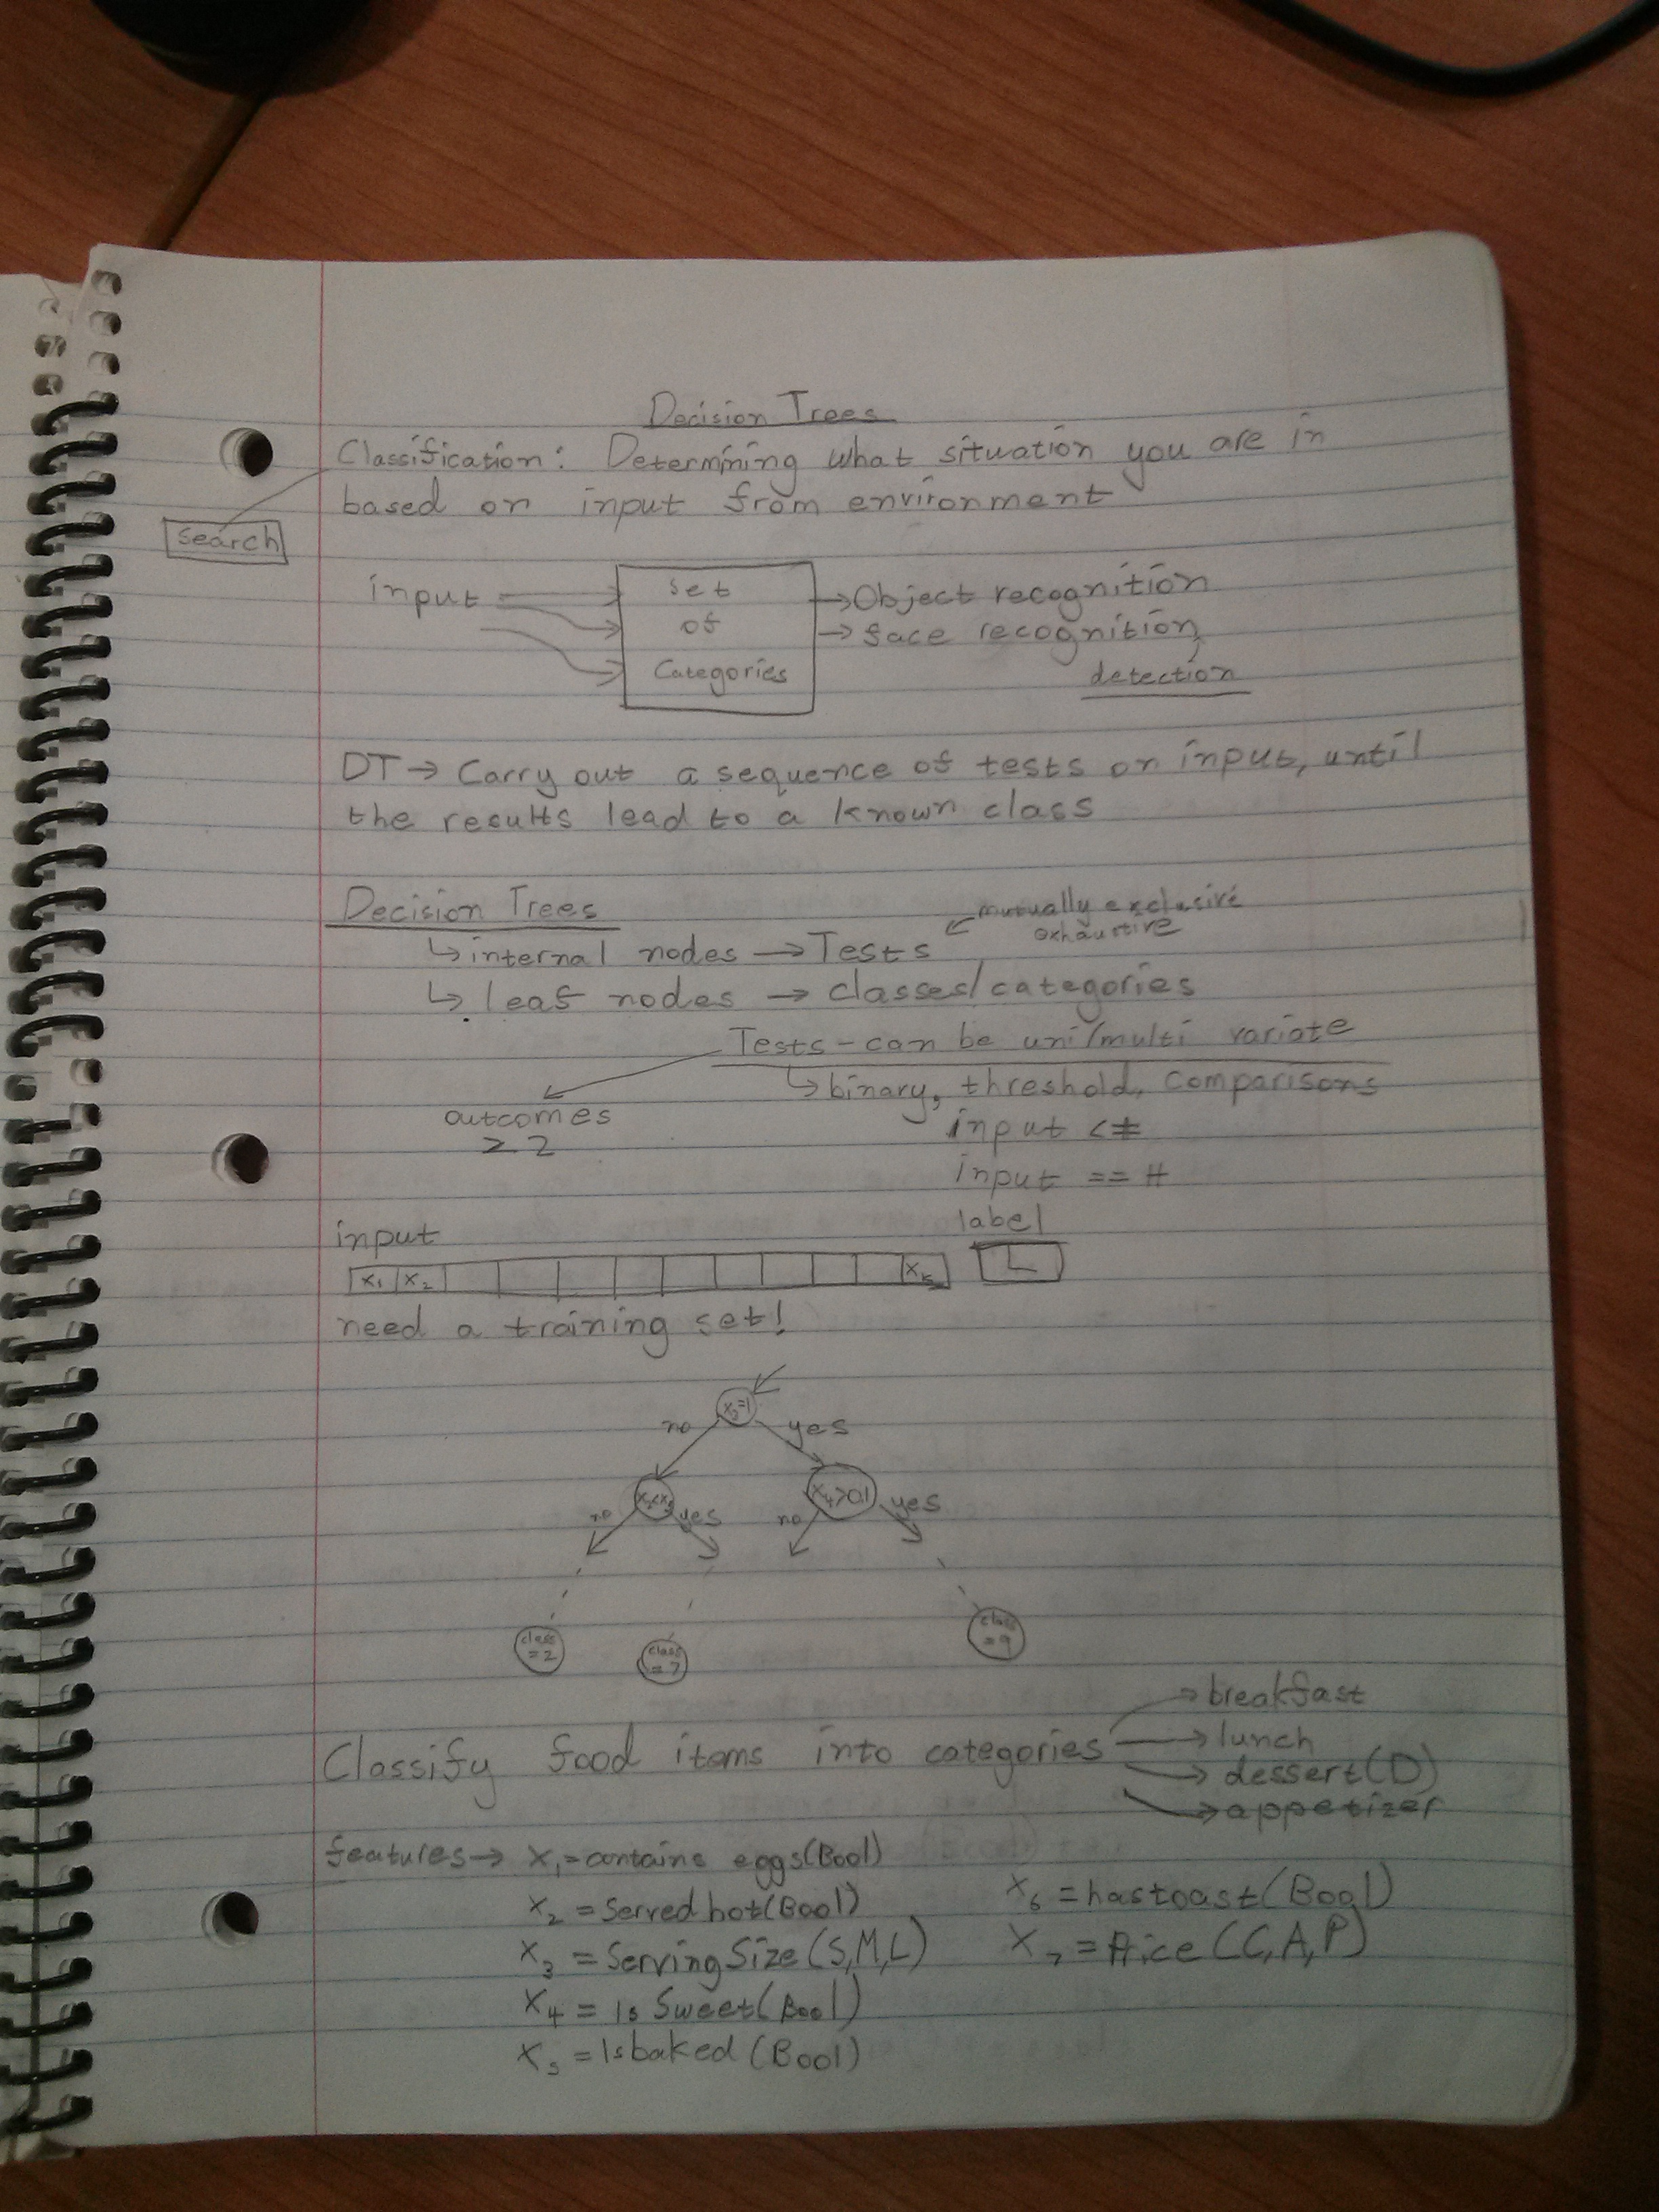 Decision Trees
Classification: Determining what situation you are in
based on input from environment
search
input
set
of
Categories
→Object recognition
→face recognition,
detection
DT→ Carry out a sequence of tests on input, until
the results lead to a known class
Decision Trees
mutually exclusive
exhaustive
↳internal nodes → Tests
↳ leaf nodes → classes/categories
Tests - can be uni/multi variate
↳binary, threshold, comparisons
outcomes
≥ 2
input <#
input == #
input
label
x₁ x₂ xₖ
L
need a training set!
x₃=1
no yes
x₂<x₅
x₄>0.1
no yes
no yes
class
=2
class
=7
class
=9
Classify food items into categories
→breakfast
→lunch
→dessert(D)
→appetizer
features→ x₁=contains eggs(Bool)
x₂ = Served hot(Bool)
x₃ = Serving Size (S,M,L)
x₄ = Is Sweet(Bool)
x₅ = Is baked (Bool)
x₆ = has toast(Bool)
x₇ = Price (C,A,P)